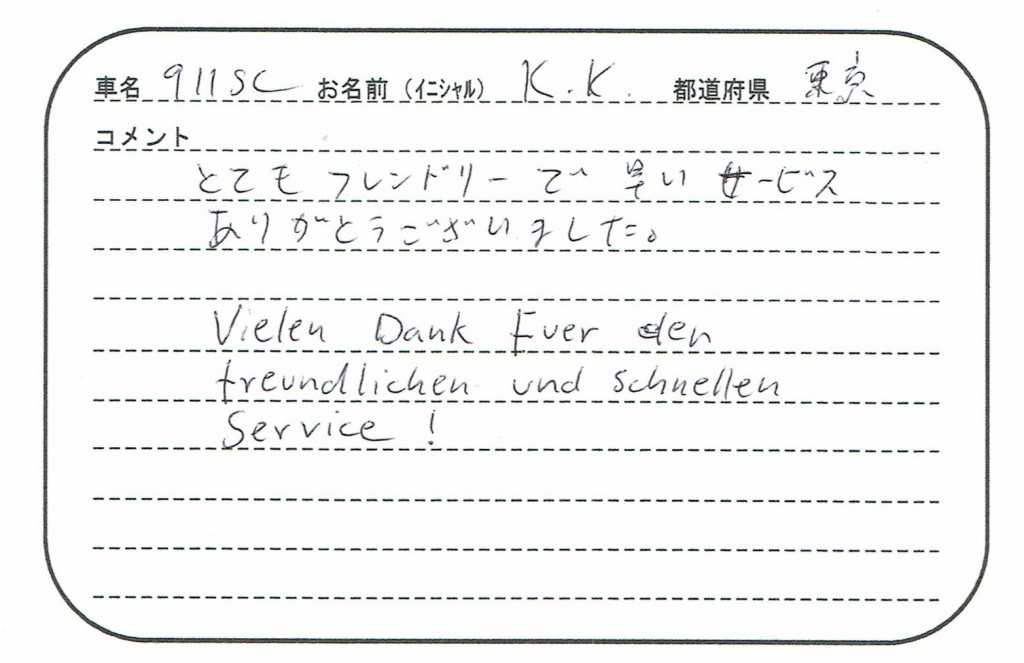 車名 911SC お名前（イニシャル） K.K. 都道府県 東京
コメント
とてもフレンドリーで早いサービス
ありがとうございました。
Vielen Dank Fuer den
freundlichen und schnellen
Service!